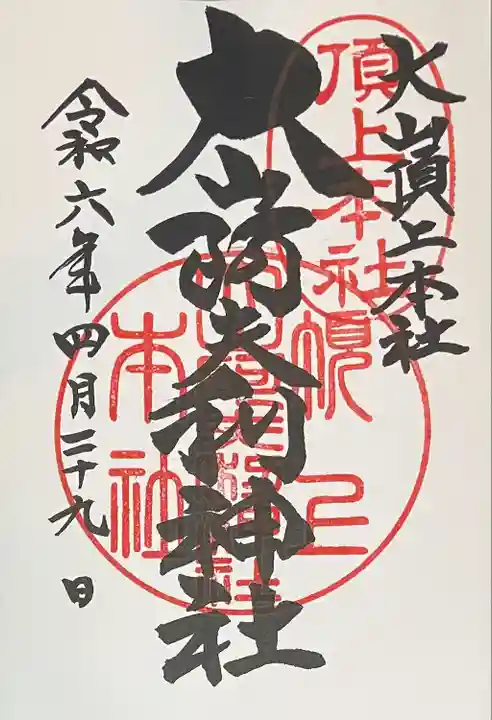 大山頂上本社
頂上本社
大山阿夫利神社
頂上
本社
令和六年四月二十九日